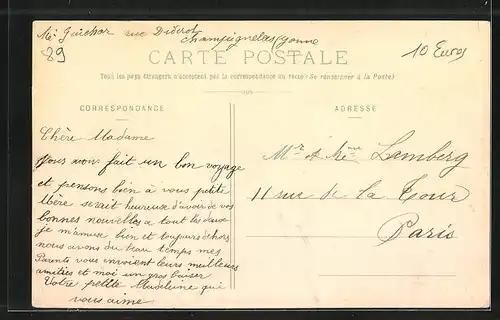 Me Guichar rue Diderot
Champignelas Yonne
89
10 Euros
CARTE POSTALE
Tous les pays étrangers n'acceptent pas la correspondance au recto (Se renseigner à la Poste)
CORRESPONDANCE
ADRESSE
Chère Madame
nous avons fait un bon voyage
et pensons bien à vous petite
Mère serait heureuse d'avoir de vos
bonnes nouvelles a tout les deux
je m'amuse bien et toujours dehors
nous avons du beau temps mes
Parents vous envoient leurs meilleurs
amitiées et moi un gros baiser
Votre petite Madeleine qui
vous aime
Mr et Mme Lamberg
11 rue de la Tour
Paris